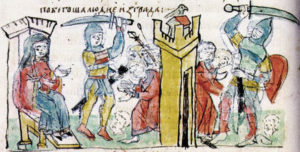 побегоша людие из града